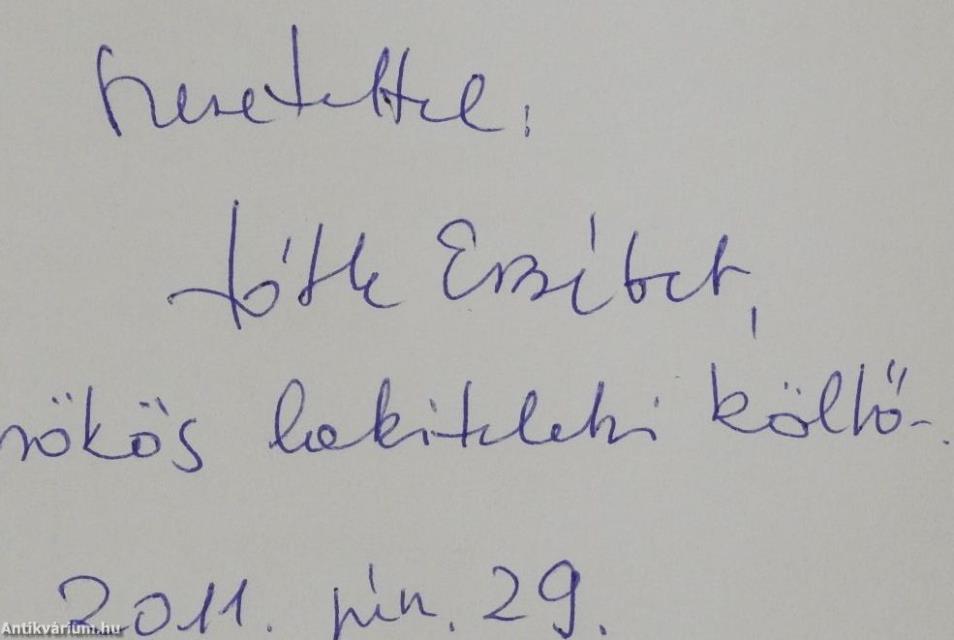 Szeretettel:
Tóth Erzsébet,
örökös lakiteleki költő-.
2011. jún. 29.
Antikvárium.hu